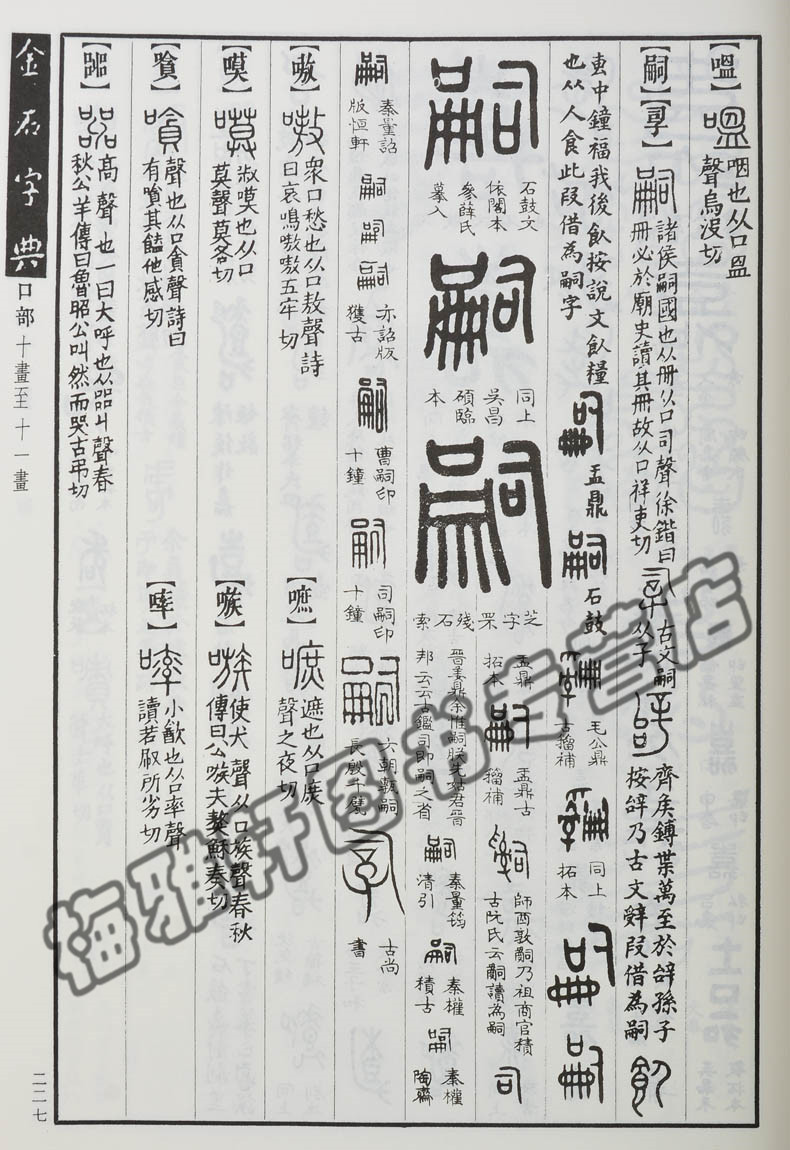 【嗢】咽也从口昷
聲烏沒切
【嗣】【𤔲】諸侯嗣國也从冊从口司聲徐鍇曰
冊必於廟史讀其冊故从口祥吏切
古文嗣
从子
齊侯鎛葉萬至於辝孫子
按辝乃古文辤叚借為嗣
壴中鐘福我後飤按說文飤糧
也从人食此叚借為嗣字
盂鼎
石鼓
毛公鼎
古籀補
同上
拓本
盂鼎
拓本
盂鼎古
籀補
師酉敦嗣乃祖啇官積
古阮氏云嗣讀為嗣
石鼓文
依閣本
參薛氏
摹入
同上
吳昌
碩臨
本
芝字罘殘石索
晉姜鼎余惟嗣朕先姑君晉
邦云云古鑑司即嗣之省
秦量
清引
秦權
積古
秦權
陶齋
秦量詔
版恒軒
亦詔版
獲古
曹嗣印
十鐘
司嗣印
十鐘
六朝嗣
長殷千甓
古尚
書
【嗷】眾口愁也从口敖聲詩
曰哀鳴嗷嗷五牢切
【嗻】遮也从口庶
聲之夜切
【嗼】㖖嗼也从口
莫聲莫各切
【嗾】使犬聲从口族聲春秋
傳曰公嗾夫獒穌奏切
【嗿】聲也从口貪聲詩曰
有嗿其饁他感切
【啐】小歠也从口率聲
讀若㕞所劣切
【嘂】高聲也一曰大呼也从㗊丩聲春
秋公羊傳曰魯昭公叫然而哭古弔切
金石字典
口部十畫至十一畫
二二七
梅雅轩图书专营店